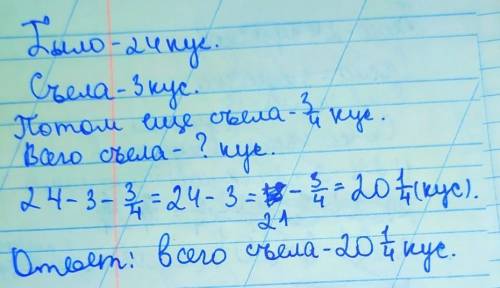 Было - 24 кус.
Съела - 3 кус.
Потом еще съела - 3/4 кус.
Всего съела - ? кус.
24 - 3 - 3/4 = 24 - 3 = 21 - 3/4 = 20 1/4 (кус).
Ответ: всего съела - 20 1/4 кус.